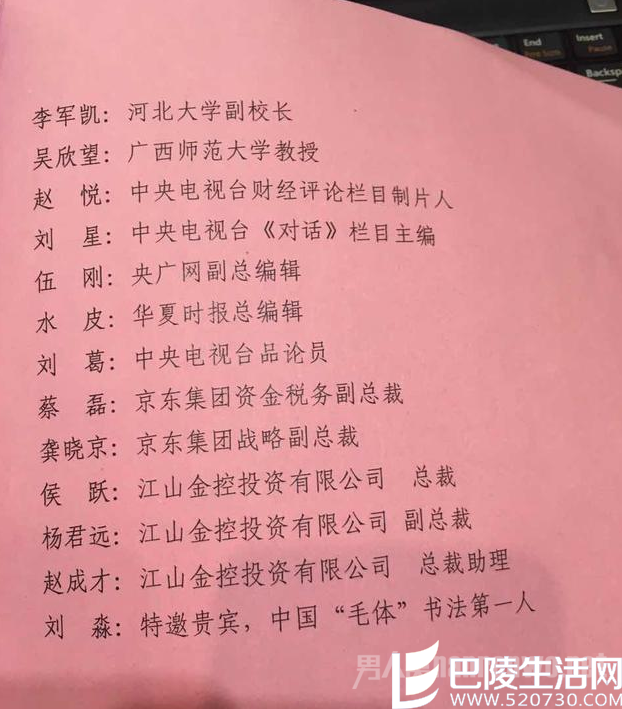 End
Insert
Pause
Backsp
李军凯：河北大学副校长
吴欣望：广西师范大学教授
赵　悦：中央电视台财经评论栏目制片人
刘　星：中央电视台《对话》栏目主编
伍　刚：央广网副总编辑
水　皮：华夏时报总编辑
刘　葛：中央电视台品论员
蔡　磊：京东集团资金税务副总裁
龚晓京：京东集团战略副总裁
侯　跃：江山金控投资有限公司　总裁
杨君远：江山金控投资有限公司 副总裁
赵成才：江山金控投资有限公司　总裁助理
刘　淼：特邀贵宾，中国“毛体”书法第一人
巴陵生活网
www.520730.com